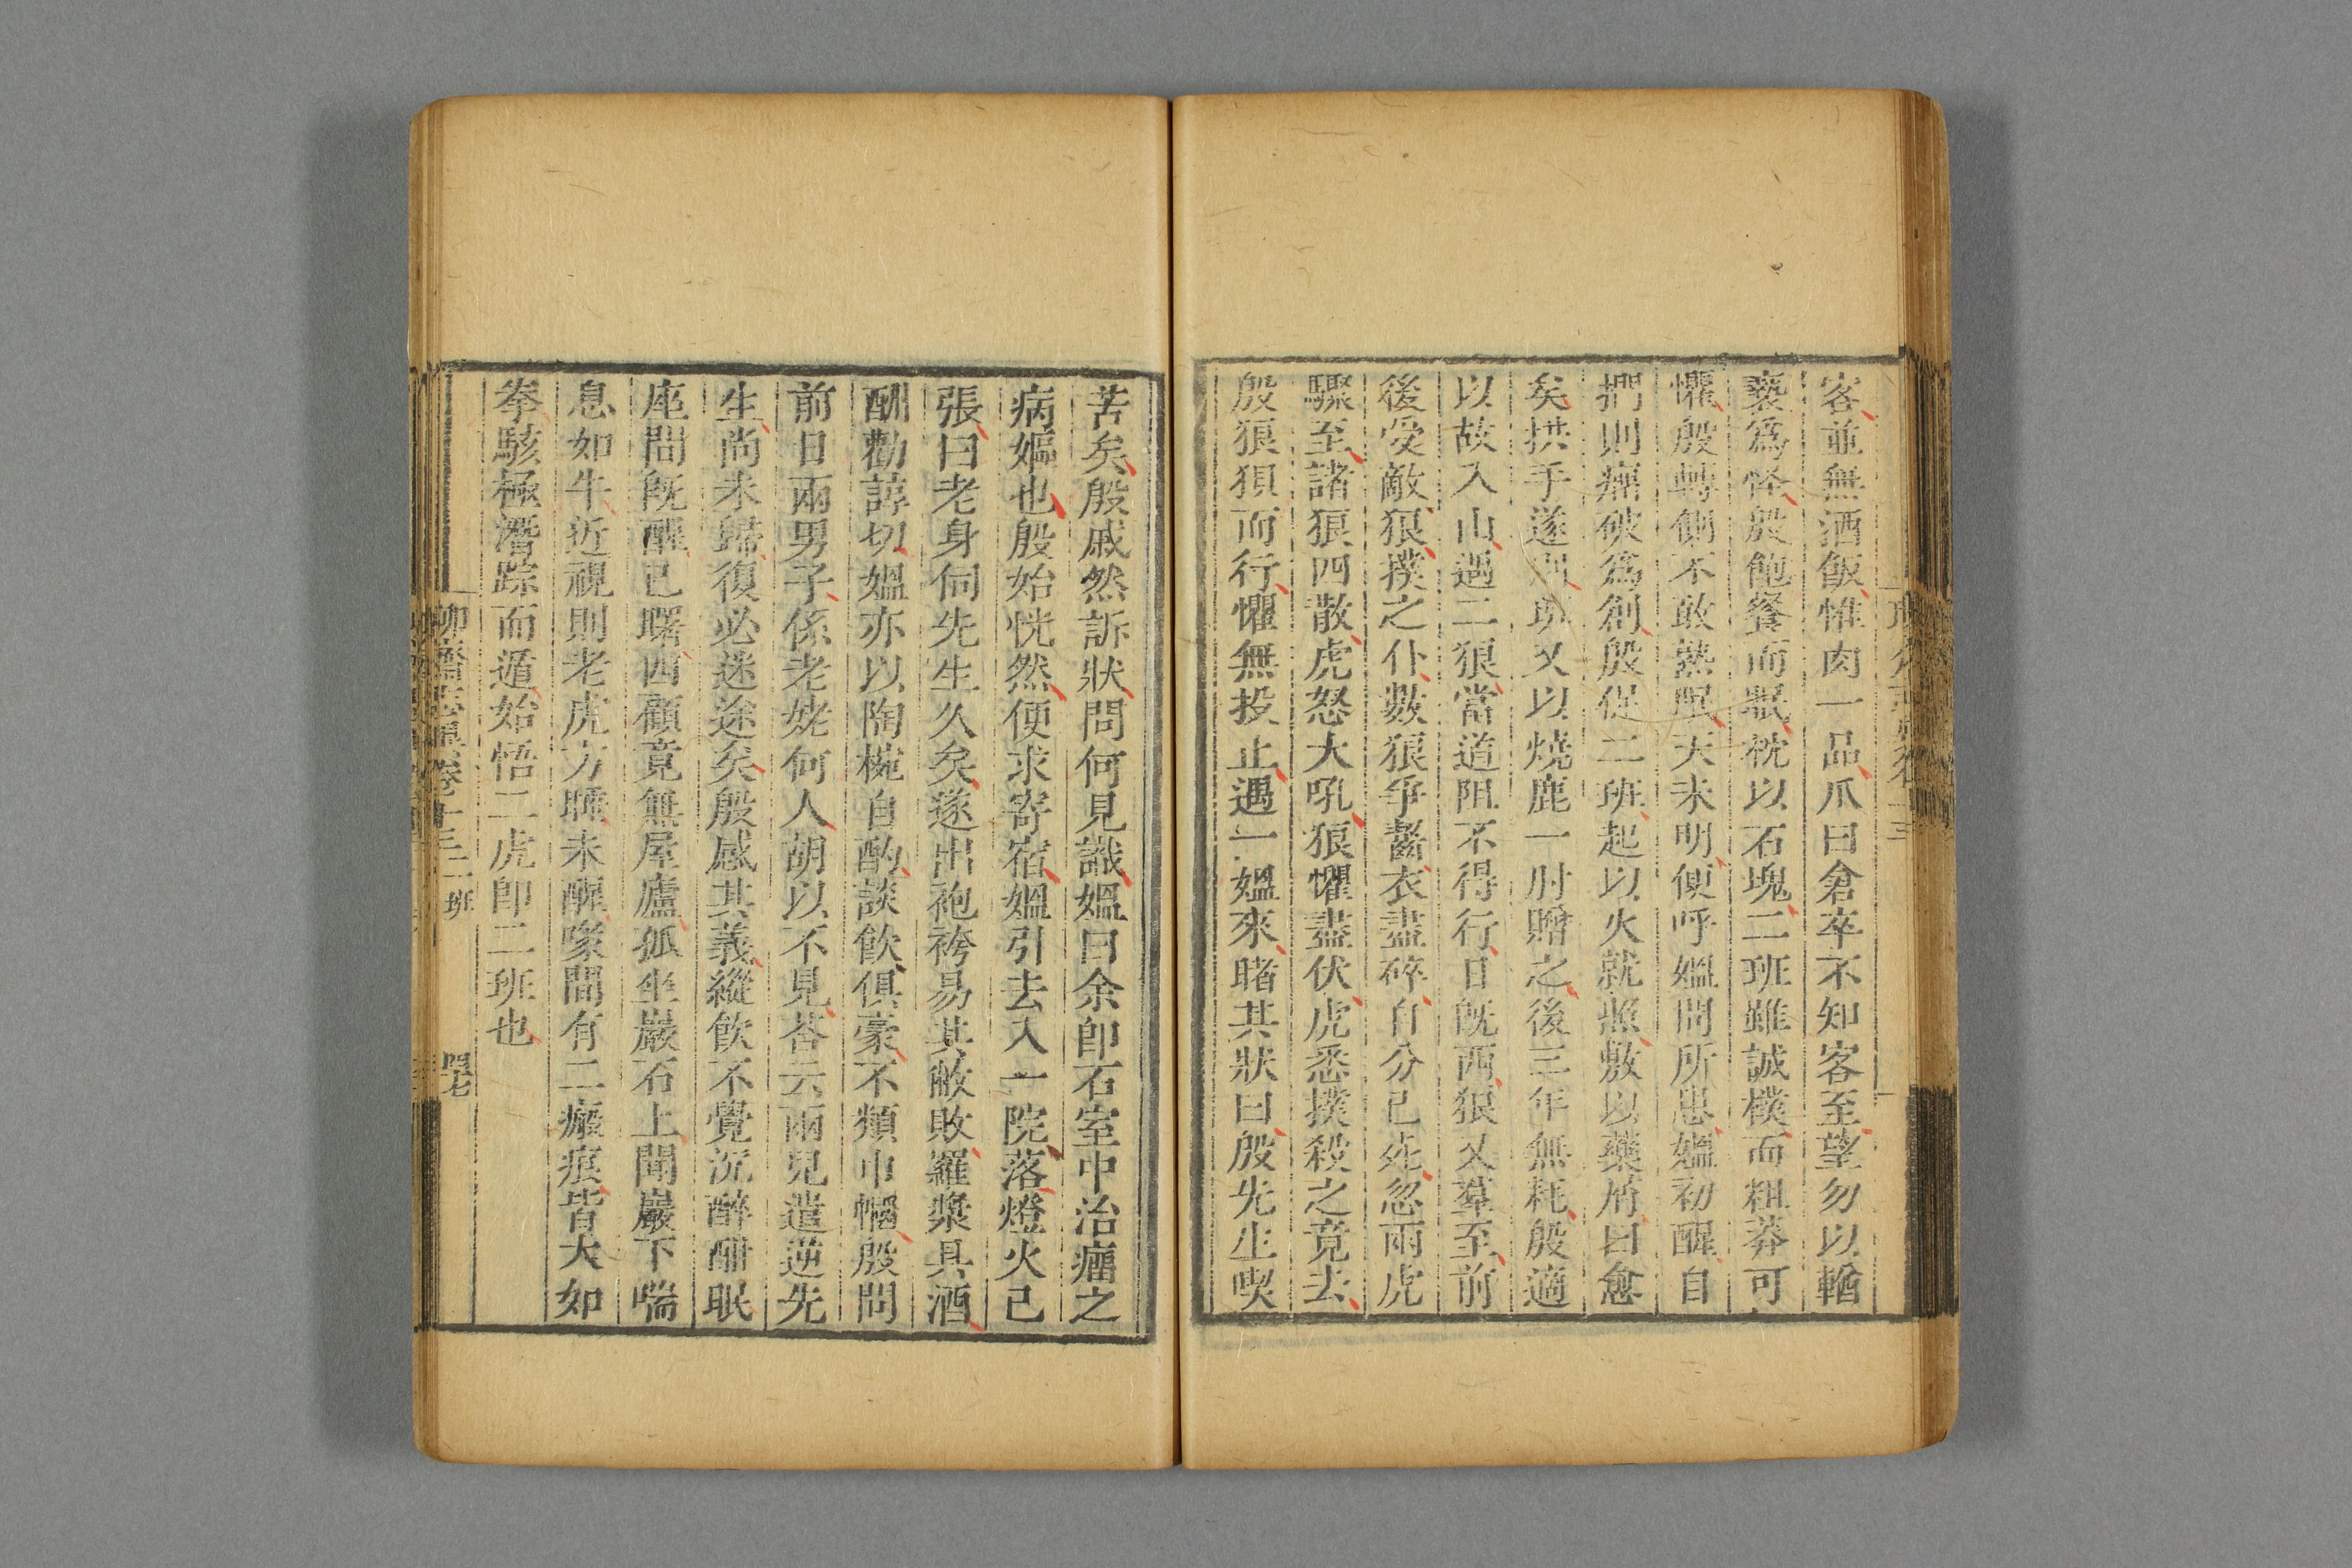 客並無酒飯惟肉一品爪曰倉卒不知客至望勿以輶
褻爲怪殷飽餐而眠枕以石塊二班雖誠樸而粗莽可
懼殷轉側不敢熟眠天未明便呼媼問所患媼初醒自
捫則瘤破爲創殷促二班起以火就照敷以藥屑曰愈
矣拱手遂別班又以燒鹿一肘贈之後三年無耗殷適
以故入山遇二狼當道阻不得行日既西狼又羣至前
後受敵狼撲之仆數狼爭齧衣盡碎自分已死忽兩虎
驟至諸狼四散虎怒大吼狼懼盡伏虎悉撲殺之竟去
殷狼狽而行懼無投止遇一媼來睹其狀曰殷先生喫
苦矣殷戚然訴狀問何見識媼曰余卽石室中治瘤之
病嫗也殷始恍然便求寄宿媼引去入一院落燈火已
張曰老身伺先生久矣遂出袍袴易其敝敗羅漿具酒
酬勸諄切媼亦以陶椀自酌談飲俱豪不類巾幗殷問
前日兩男子係老姥何人胡以不見荅云兩兒遣逆先
生尚未歸復必迷途矣殷感其義縱飲不覺沉醉酣眠
座間既醒已曙四顧竟無屋廬孤坐巖石上聞巖下喘
息如牛近視則老虎方睡未醒喙間有二瘢痕皆大如
拳駭極潛踪而遁始悟二虎卽二班也
聊齋志異卷十三 二班 四七